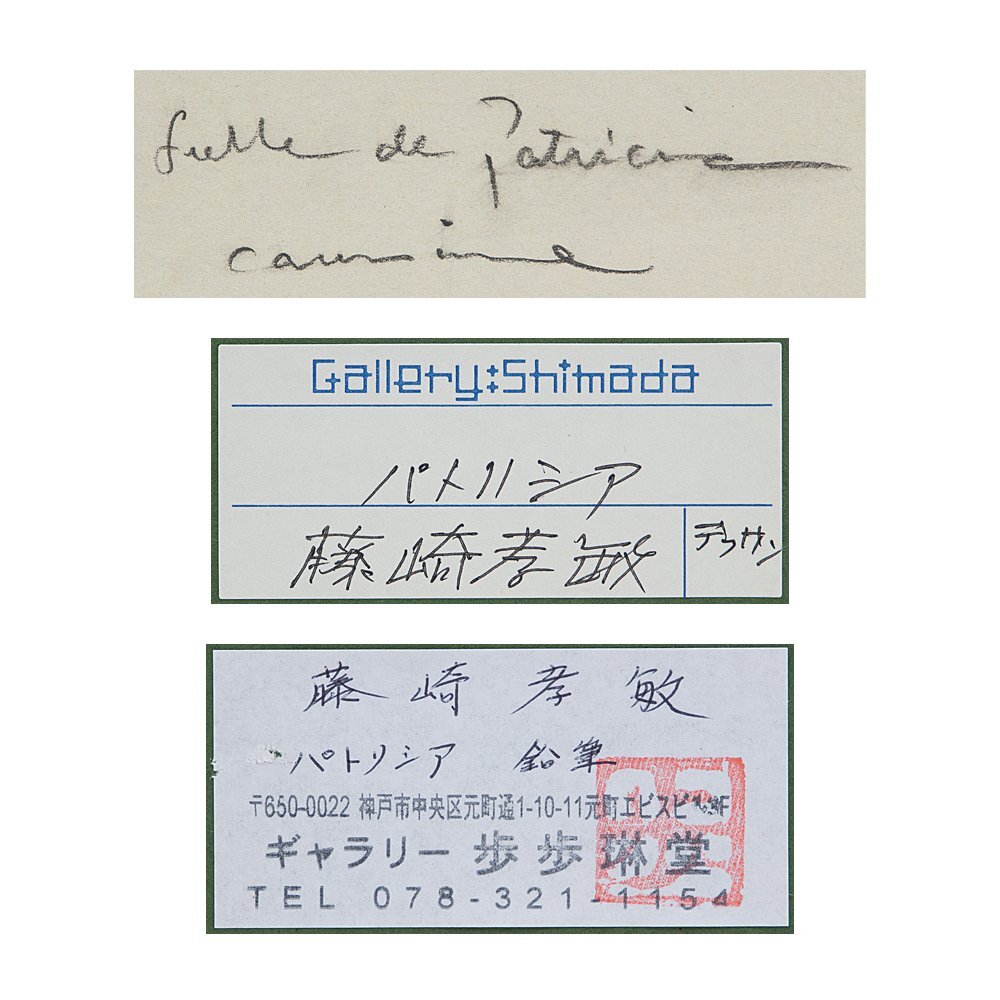 fille de Patricia
Gallery:Shimada
パトリシア
藤崎孝敏
デッサン
藤崎孝敏
パトリシア 鉛筆
〒650-0022 神戸市中央区元町通1-10-11元町エビスビル3F
ギャラリー 歩歩琳堂
TEL 078-321-1154